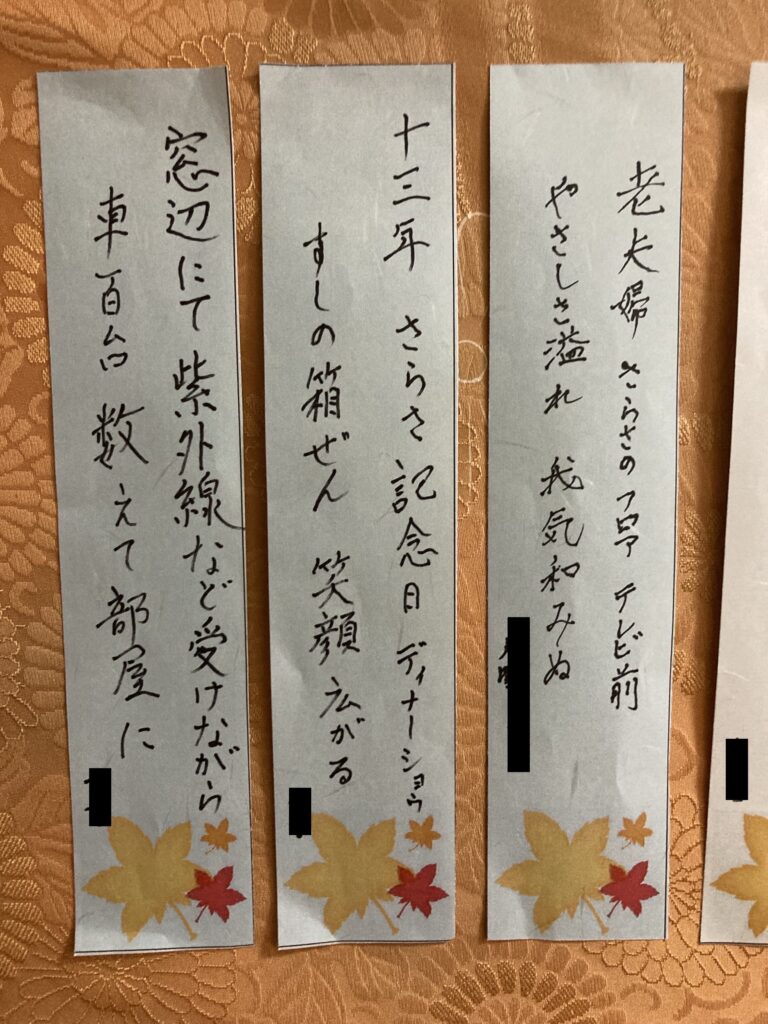 老夫婦 さらさのフロア テレビ前
やさしさ溢れ 我気和みぬ
十三年 さらさ記念日 ディナーショウ
すしの箱ぜん 笑顔広がる
窓辺にて紫外線など受けながら
車百台 数えて部屋に